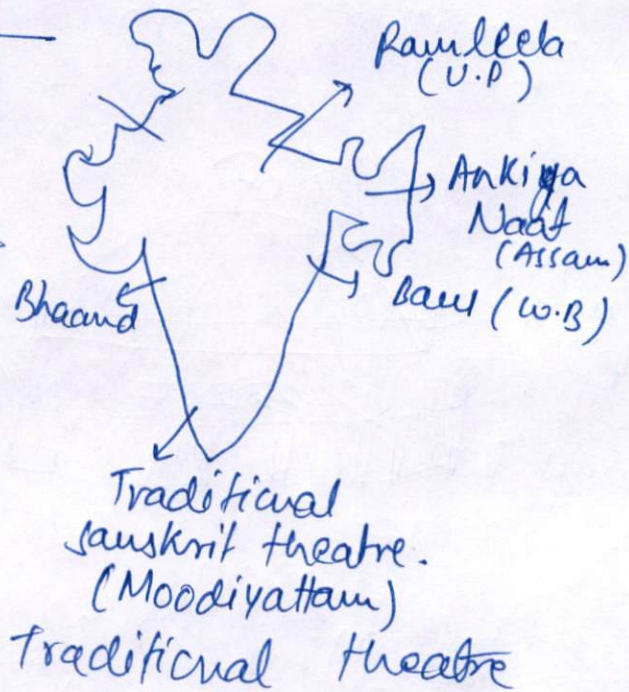 Ramleela
(U.P)
Ankiya
Naat
(Assam)
Baul (W.B)
Bhaand
Traditional
sanskrit theatre.
(Moodiyattam)
Traditional theatre